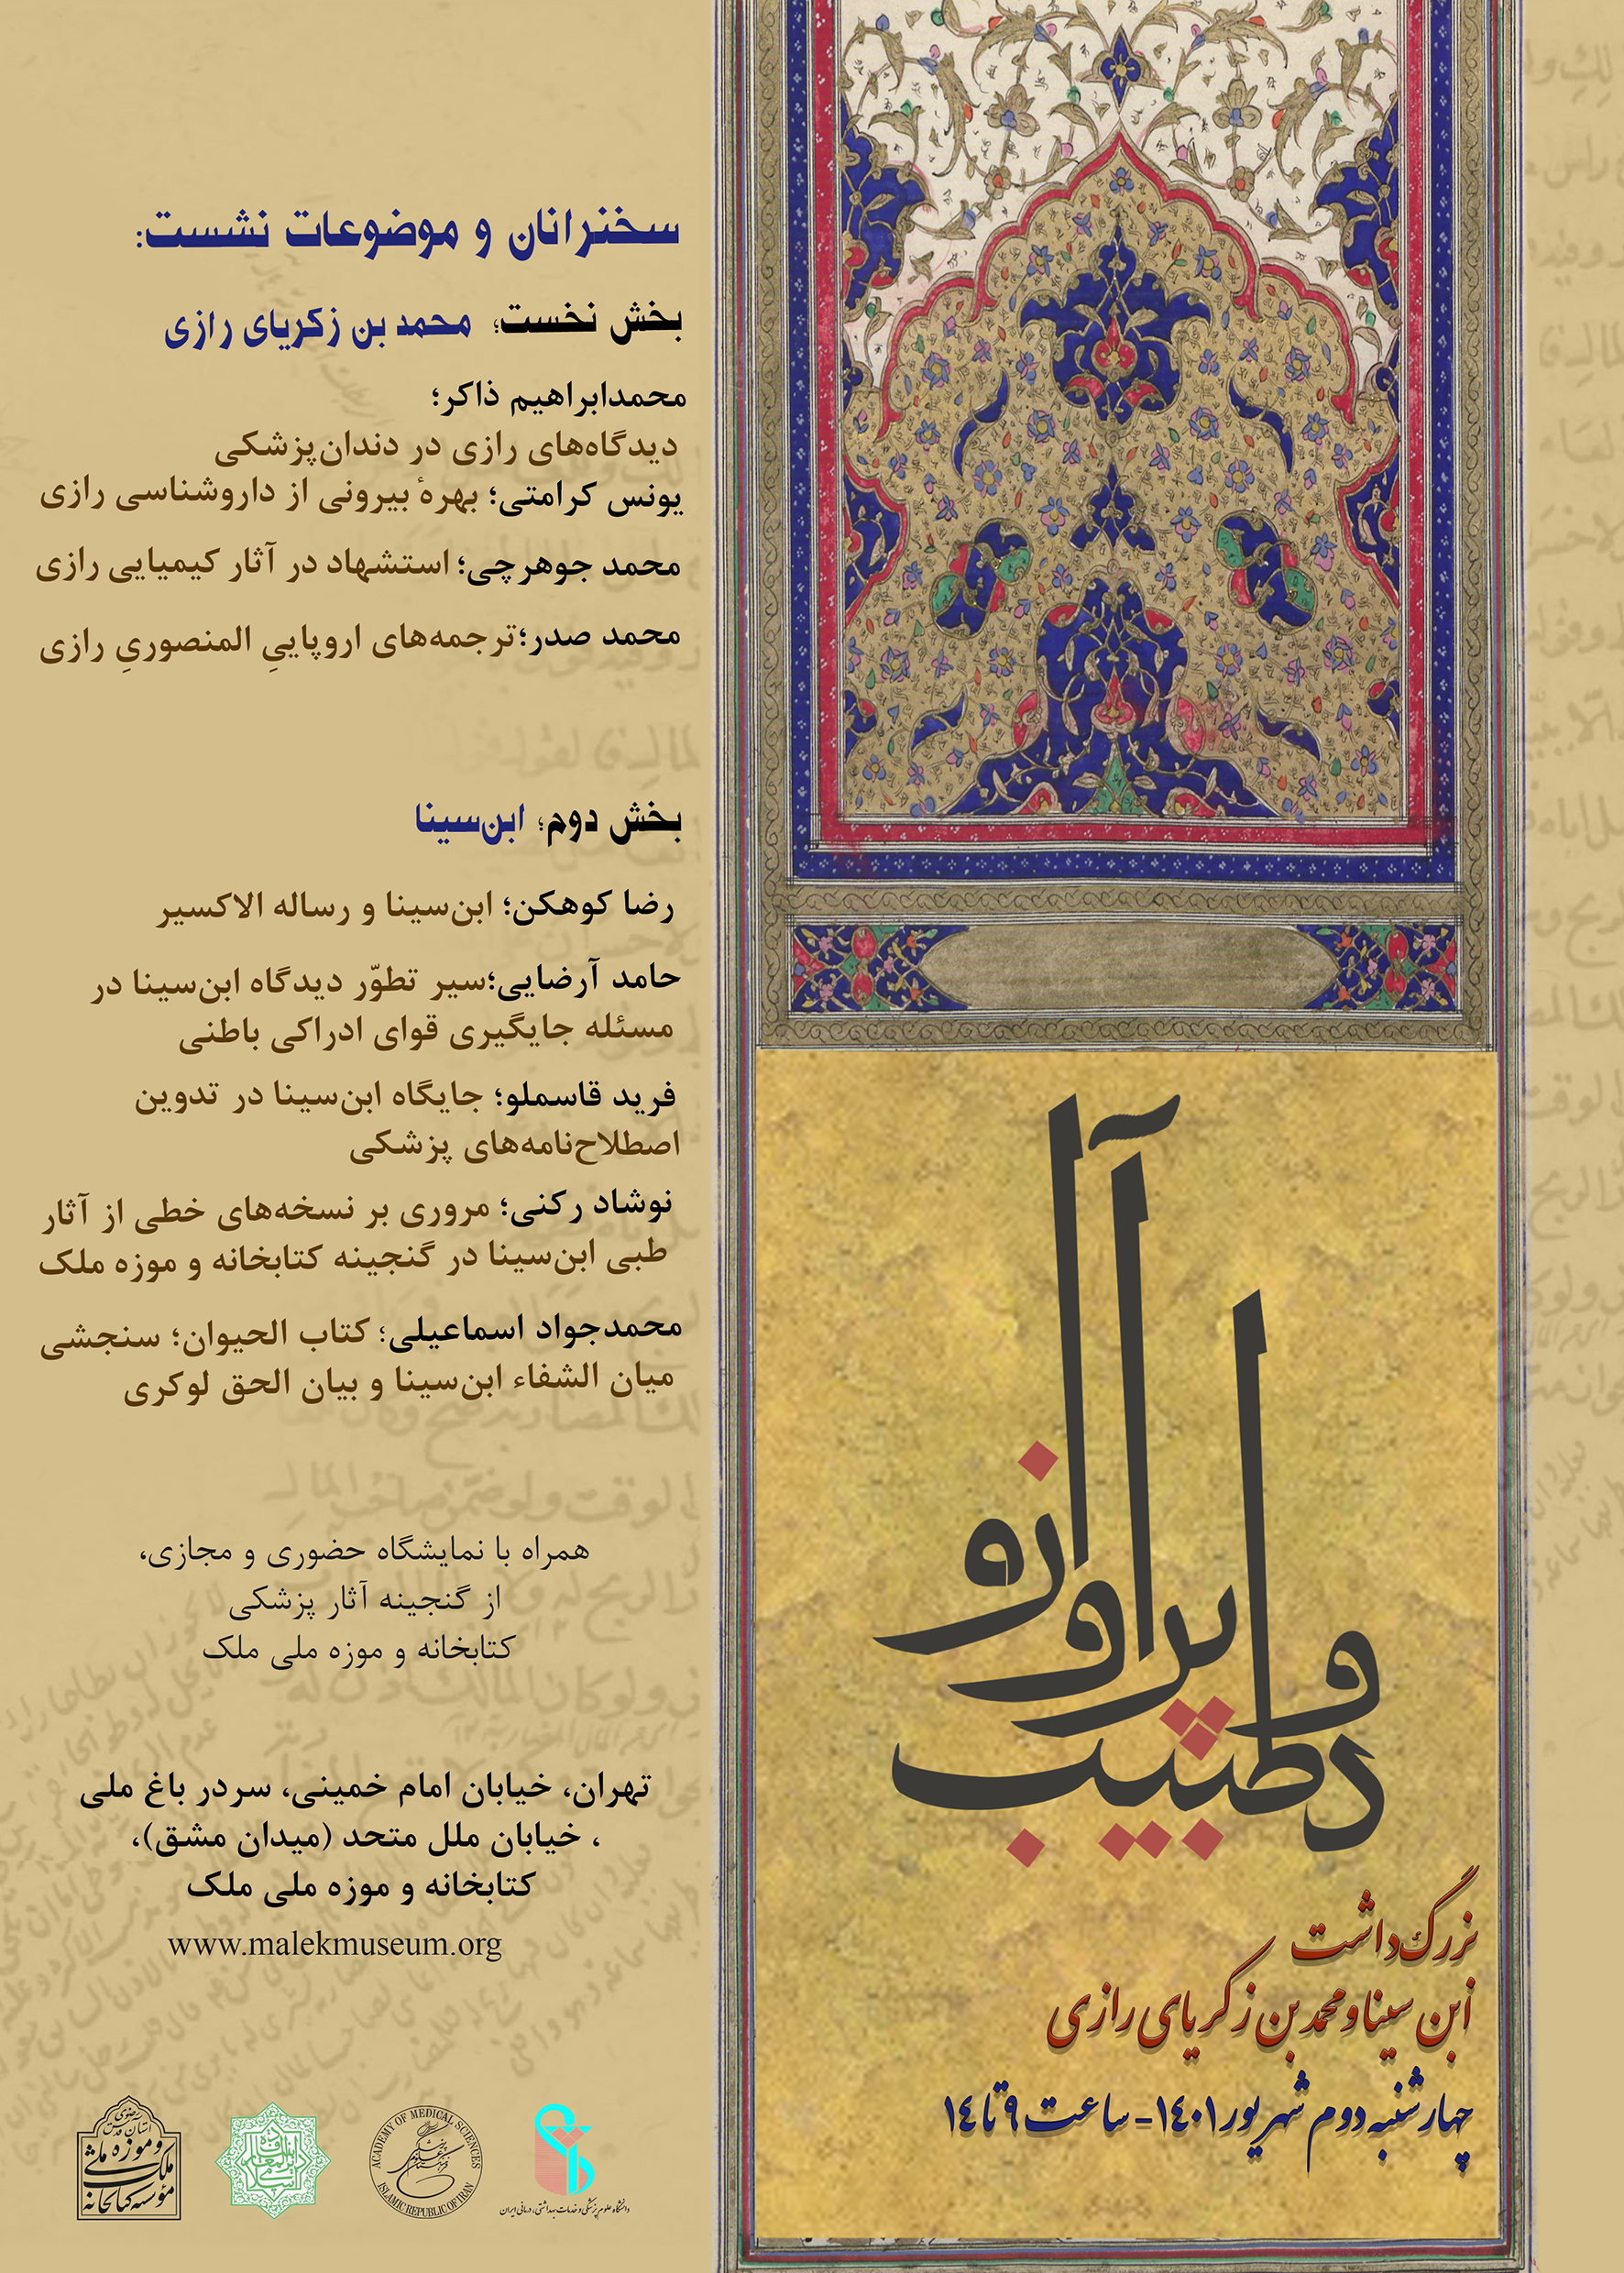 سخنرانان و موضوعات نشست:
بخش نخست؛ محمد بن زکریای رازی
محمدابراهیم ذاکر؛
دیدگاه‌های رازی در دندان‌پزشکی
یونس کرامتی؛ بهرهٔ بیرونی از داروشناسی رازی
محمد جوهرچی؛ استشهاد در آثار کیمیایی رازی
محمد صدر؛ترجمه‌های اروپاییِ المنصوریِ رازی
بخش دوم؛ ابن‌سینا
رضا کوهکن؛ ابن‌سینا و رساله الاکسیر
حامد آرضایی؛سیر تطوّر دیدگاه ابن‌سینا در
مسئله جایگیری قوای ادراکی باطنی
فرید قاسملو؛ جایگاه ابن‌سینا در تدوین
اصطلاح‌نامه‌های پزشکی
نوشاد رکنی؛ مروری بر نسخه‌های خطی از آثار
طبی ابن‌سینا در گنجینه کتابخانه و موزه ملک
محمدجواد اسماعیلی؛ کتاب الحیوان؛ سنجشی
میان الشفاء ابن‌سینا و بیان الحق لوکری
همراه با نمایشگاه حضوری و مجازی،
از گنجینه آثار پزشکی
کتابخانه و موزه ملی ملک
تهران، خیابان امام خمینی، سردر باغ ملی
، خیابان ملل متحد (میدان مشق)،
کتابخانه و موزه ملی ملک
www.malekmuseum.org
دو طبیب پرآوازه
بزرگ‌داشت
ابن سینا و محمد بن زکریای رازی
چهارشنبه دوم شهریور ۱۴۰۱ - ساعت ۹ تا ۱۴
آستان قدس رضوی
مؤسسه کتابخانه و موزه ملی ملک
ACADEMY OF MEDICAL SCIENCES
ISLAMIC REPUBLIC OF IRAN
دانشگاه علوم پزشکی و خدمات بهداشتی، درمانی ایران